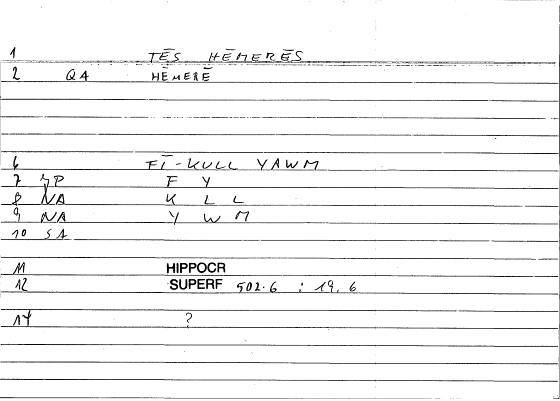 1 TĒS HĒMERĒS
2 QA HĒMERĒ
6 FĪ-KULL YAWM
7 SP F Y
8 NA K L L
9 NA Y W M
10 SA
11 HIPPOCR
12 SUPERF 502.6 : 19.6
14 ?